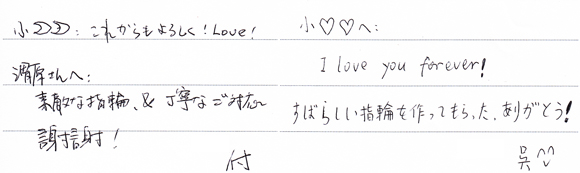 小〇〇：これからもよろしく！Love!
澤原さんへ：
素敵な指輪、& 丁寧なご対応
謝謝！
付
小♡♡へ：
I love you forever!
すばらしい指輪を作ってもらった、ありがとう！
呉^^